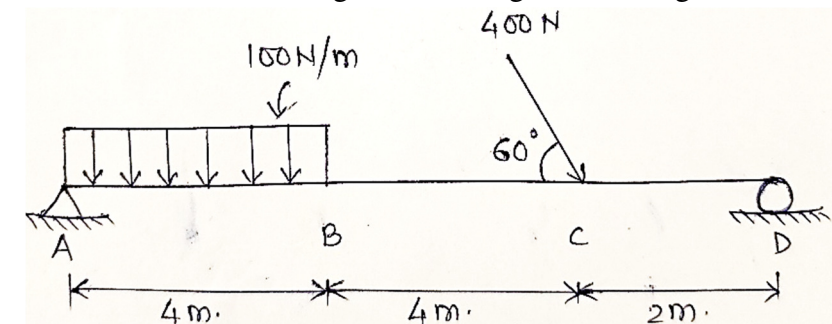 400 N
100 N/m
60°
A B C D
4m. 4m. 2m.